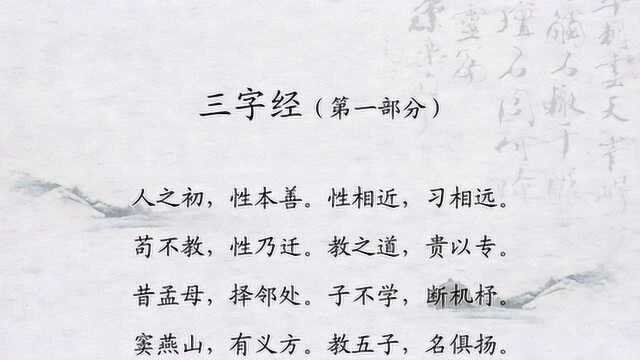 三字经（第一部分）
人之初，性本善。性相近，习相远。
苟不教，性乃迁。教之道，贵以专。
昔孟母，择邻处。子不学，断机杼。
窦燕山，有义方。教五子，名俱扬。